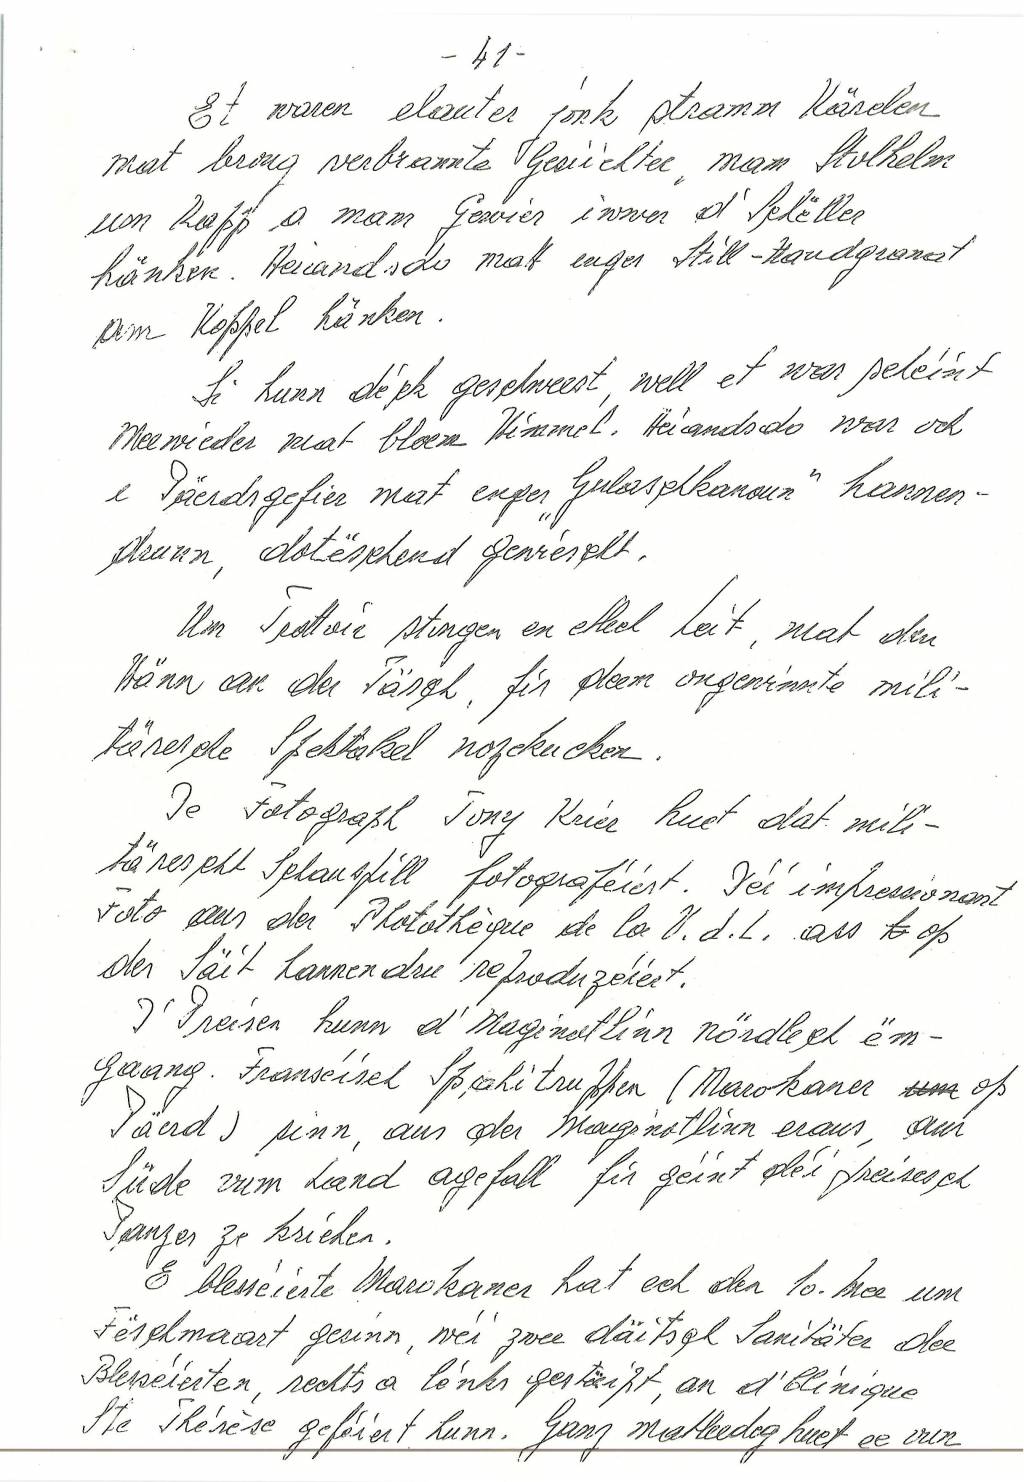 - 41 -
Et waren elauter jonk stramm Kärelen
mat brong verbrannte Gesiichter, mam Stolhelm
um Kapp a mam Gewier iwwer d'Schëller
hänken. Heiandsdo mat enger Still-Handgranat
am Koppel hänken.
Si hunn déck geschweest, well et war schéint
Meewieder mat bloem Himmel. Heiandsdo war och
e Päerdsgefier mat enger "Gulaschkanoun" hannen-
drunn, dotëschend gewiescht.
Um Trottoir stungen en etlech Leit, mat den
Hänn an der Täsch, fir deem ongewinnte mili-
täresche Spektakel nozekucken.
De Fotograph Tony Krier huet dat mili-
täresch Schauspill fotograféiert. Déi impressionant
Foto aus der Photothèque de la V.d.L. ass op
der Säit hannendru reproduzéiert.
D'Preisen hunn d'Maginotlinn nördlech ëm-
gaang. Franséisch Spahitruppen (Marokaner um op
Päerd) sinn, aus der Maginotlinn eraus, am
Süde vum Land agefall fir géint déi preisesch
Panzer ze kricken.
E blesséierte Marokaner hat ech den 10. Mee um
Fëschmaart gesinn, wéi zwee däitsch Sanitäter dee
Blesséierten, rechts a lénks gestäipt, an d'Clinique
Ste Thérèse geféiert hunn. Ganz matleedeg huet ee vun